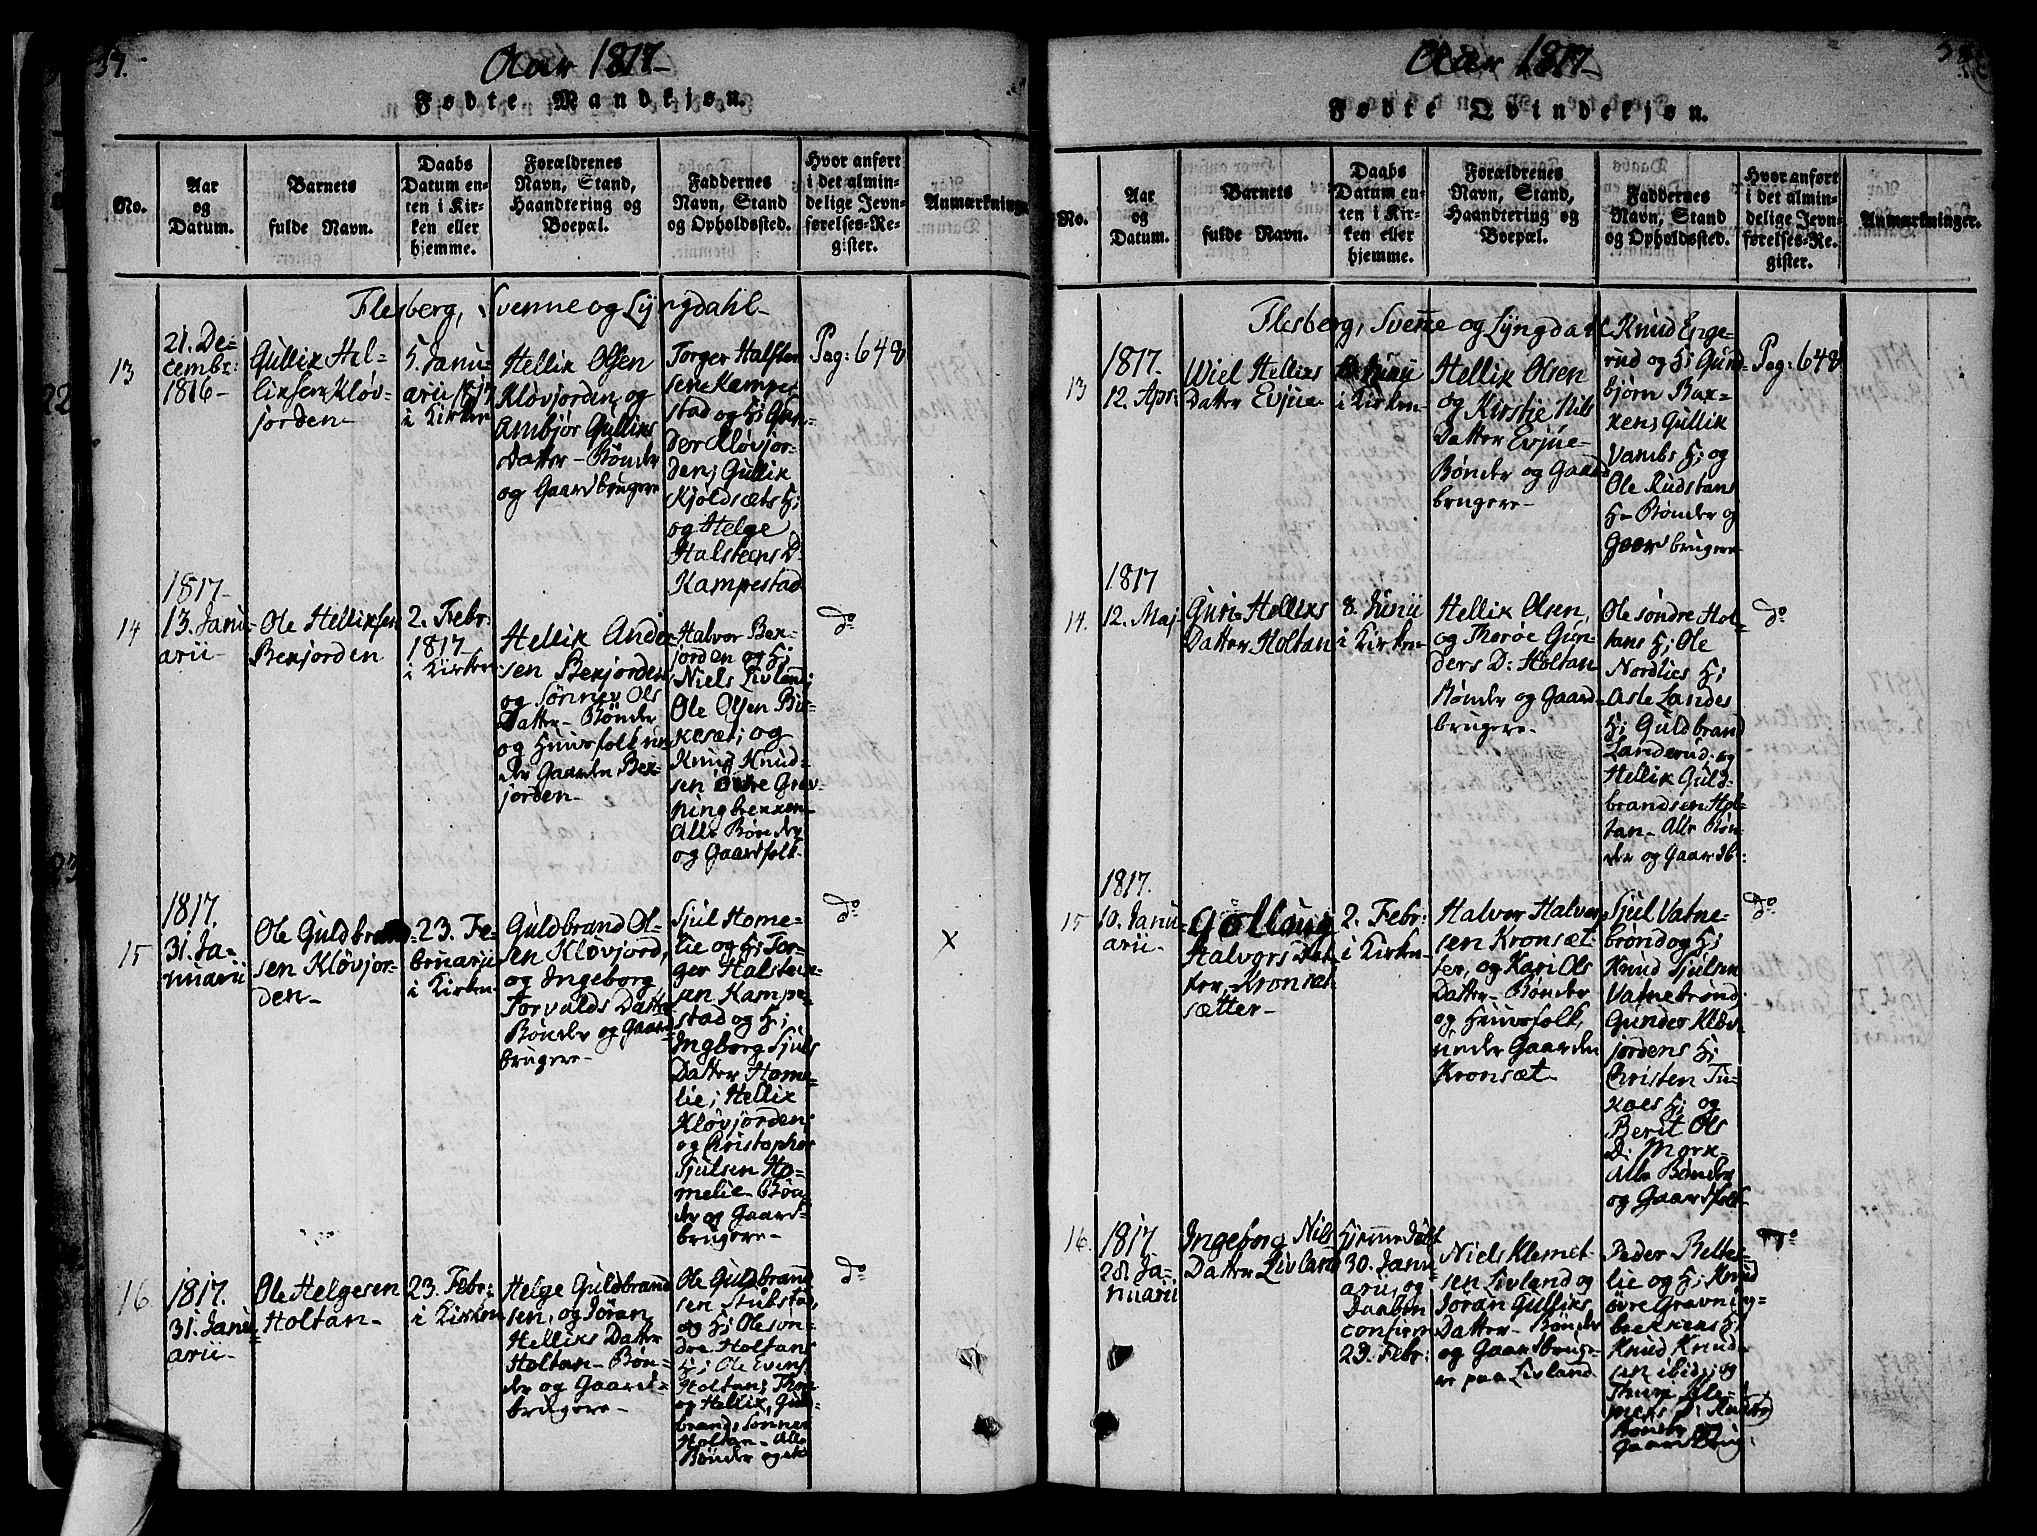 37.
Aar 1817.
Fødte Mandkjøn.
No.
Aar
og
Datum.
Barnets
fulde Navn.
Daabs
Datum en-
ten i Kir-
ken eller
hjemme.
Forældrenes
Navn, Stand,
Haandtering og
Boepæl.
Faddernes
Navn, Stand
og Opholdssted.
Hvor anført
i det almin-
delige Jevn-
førelses-Re-
gister.
Anmærkninge
Flesberg, Svenne og Lyngdahl
13
21. De-
cembr:
1816-
Gullik Hel-
liksen Kløv-
jorden-
5. Janu-
arii 1817
i Kirken
Hellik Olsen
Kløvjorden og
Ambjør Gulliks
Datter- Bønder
og Gaardbrugere
Torger Halsten
sen Kampe-
stad og H; Gun-
der Kløvjor-
den; Gullik
Kjoldsæts H;
og Helge
Halsteens D.
Kampestad
Pag: 648
14
1817-
13. Janu-
arii-
Ole Helliksen
Bekjorden
2. Febr:
1817-
i Kirken
Hellik Ander
sen Bekjorden
og Sønnev Ols
Datter- Bønder
og Huusfolk un-
der Gaarden Bek-
jorden-
Halvor Bek-
jorden og H;
Niels Livland;
Ole Olsen Bu-
kesæt; og
Knud Knud-
sen øvre Grav-
ningbekken-
Alle Bønder
og Gaardfolk-
do
15
1817.
31. Ja-
nuarii
Ole Guldbrand-
sen Kløvjor-
den-
23. Fe-
bruarii
i Kirken
Guldbrand Ol-
sen Kløvjord,
og Ingeborg
Torvalds Datter
Bønder og Gaard-
brugere-
Sjul Home-
lie og H; Tor-
ger Halsteen-
sen Kampe-
stad og H;
Ingborg Sjuls
Datter Home-
lie; Hellik
Kløvjorden;
og Christopher
Sjulsen Ho-
melie- Bøn-
der og Gaard-
brugere-
do
x
16
1817.
31. Janu-
arii-
Ole Helgesen
Holtan-
23. Febr:
i Kirken
Helge Guldbrand
sen, og Jøran
Helliks Datter
Holtan- Bøn-
der og Gaard-
brugere-
Ole Guldbrand
sen Stubstad,
og H; Ole søn-
dre Holtans
H; Ole Evens
Holtan;
og Hellik Gul-
brands Sønner
Holtan- Alle
Bønder
do
Aar 1817-
Fødte Qvindekjøn.
No.
Aar
og
Datum.
Barnets
fulde Navn.
Daabs
Datum en-
ten i Kir-
ken eller
hjemme.
Forældrenes
Navn, Stand,
Haandtering og
Boepæl.
Faddernes
Navn, Stand
og Opholdssted.
Hvor anført
i det almin-
delige Jevn-
førelses-Re-
gister.
Anmærkninger.
Flesberg, Svenne og Lyngdahl
13
1817.
12. Apr:
Wiel Helliks
Datter Evjue
Junii
i Kirken-
Hellik Olsen
og Kirstie Nils
Datter Evjue-
Bønder og Gaard
brugere-
Knud Enge-
rud og H; Gun-
bjørn Bak-
ken; Gullik
Vambs H; og
Ole Rudstans
H- Bønder og
Gaardbrugere
Pag: 648
14.
1817
12. Maj
Guri Helliks
Datter Holtan
8. Junii
i Kirken
Hellik Olsen,
og Thorøe Gun-
ders D: Holtan
Bønder og Gaard-
brugere-
Ole søndre Hol-
tans H; Ole
Nordlies H;
Asle Landes
H; Guldbrand
Landerud; og
Hellik Guld-
brandsen Hol-
tan- Alle Bøn-
der og Gaardb:
do
15
1817.
10. Janu-
arii-
Gollaug
Halvors Dat-
ter, Kronsæt-
sætter-
2. Febr:
i Kirken-
Halvor Halvor-
sen Kronsæt-
ter, og Kari Ols
Datter- Bønder
og Huusfolk,
under Gaarden
Kronsæt-
Sjul Vatne-
brønd og H;
Knud Sjulsen
Vatnebrønd;
Gunder Kløv-
jordens H;
Christen Tu-
kaes H; og
Berit Ols
D; Mork-
Alle Bønder
og Gaardfolk
do
16.
1817
28. Ja-
nuarii
Ingeborg Nils
Datter Livland
Hjemmedøbt
30. Janu-
arii, og
Daaben
confirm:
23. Febr:
Niels Klemet-
sen Livland og
Jøran Gulliks
Datter- Bønder
og Gaardbruge-
re paa Livland
Peder Belte-
lie og H; Knud
øvre Gravning-
bekkens H;
Knud Knud-
sen ibid; og
Bønder og
Gaardbrug:
do